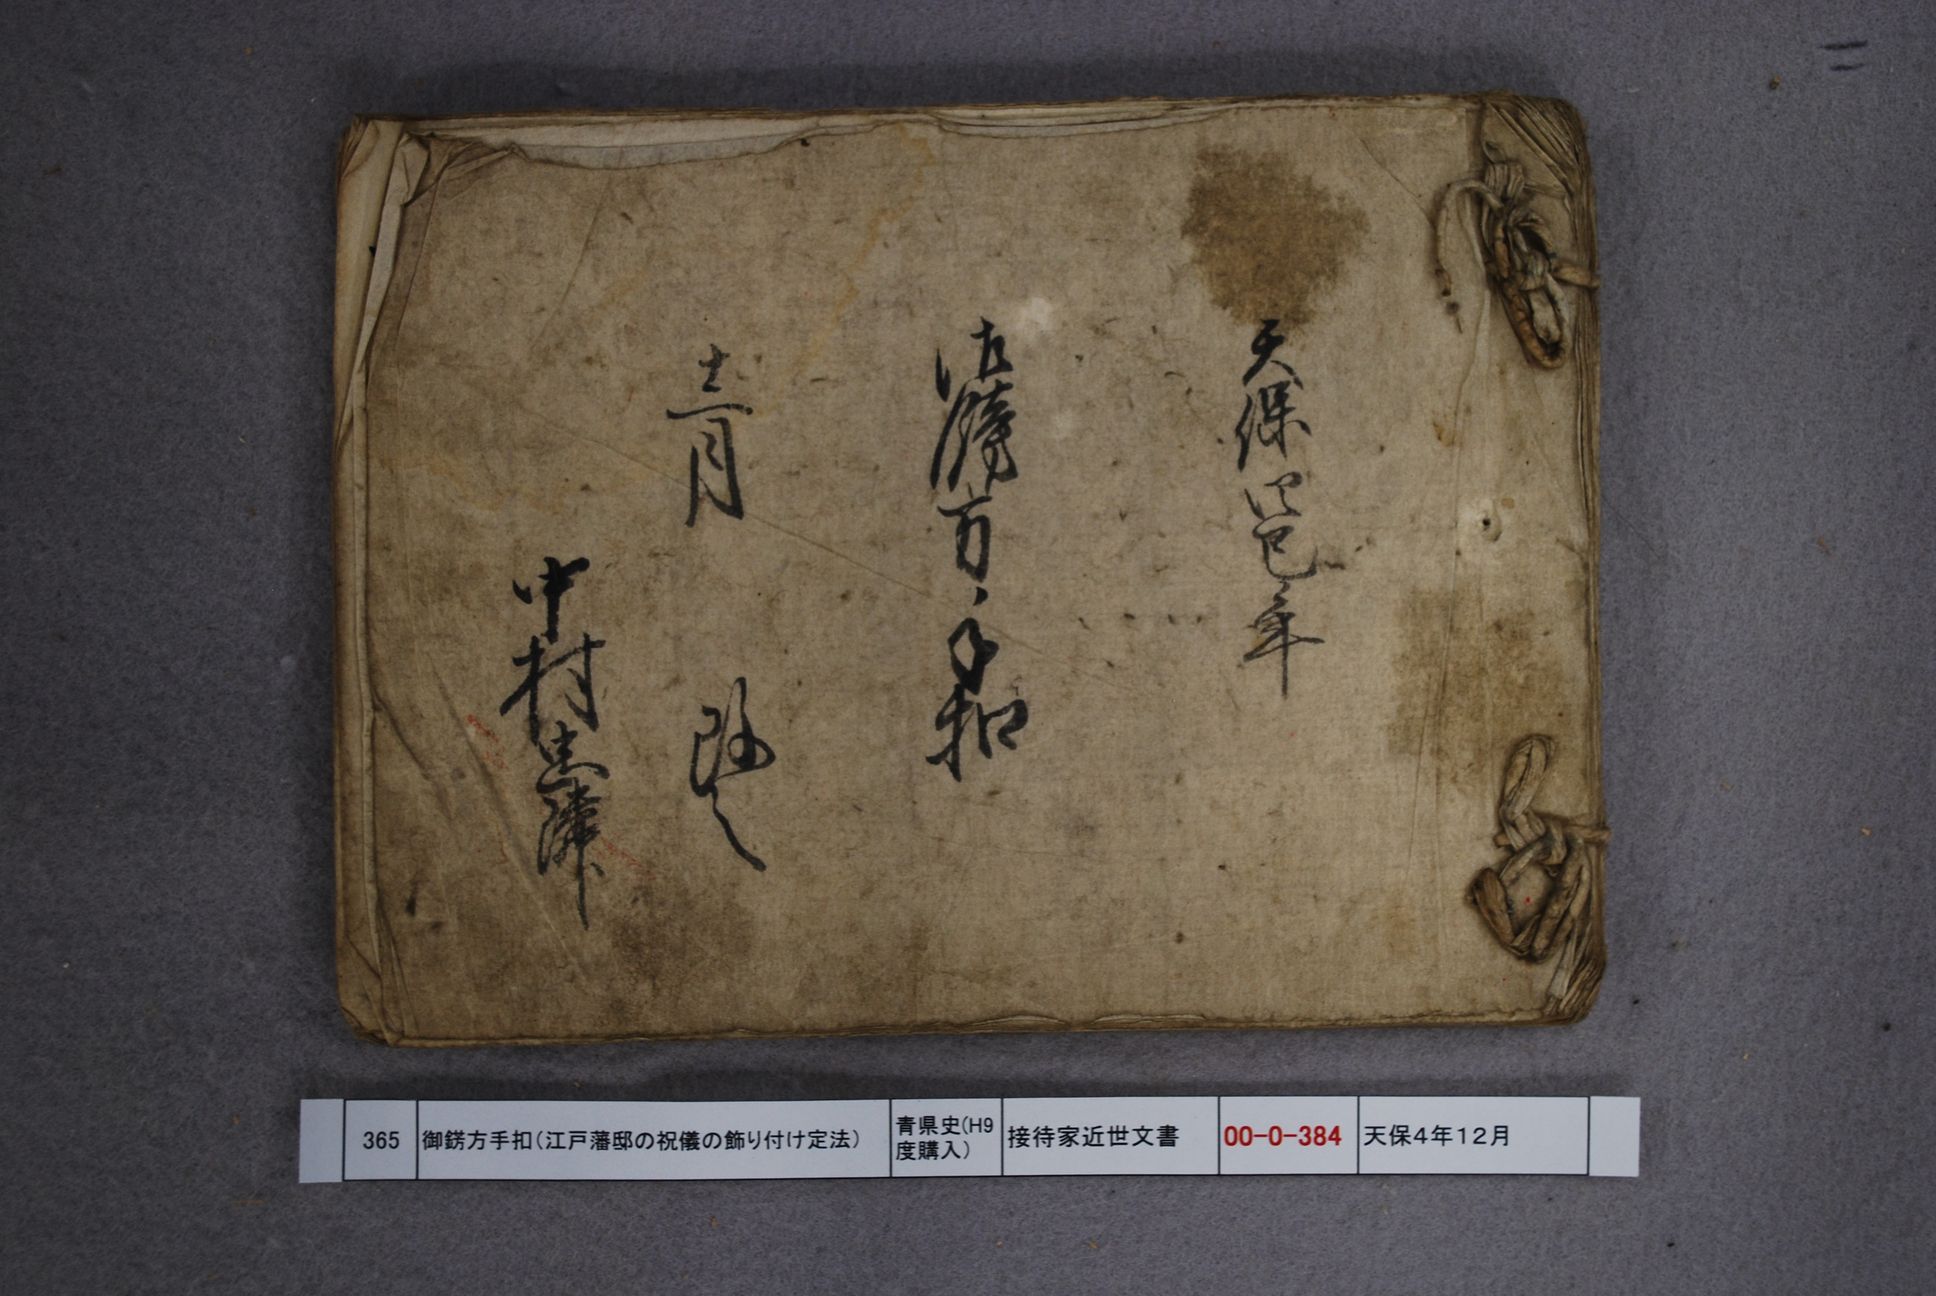 天保四巳年
御錺方手扣
十二月 改之
中村忠陣
365
御錺方手扣(江戸藩邸の祝儀の飾り付け定法)
青県史(H9
度購入)
接待家近世文書
00-0-384
天保4年12月